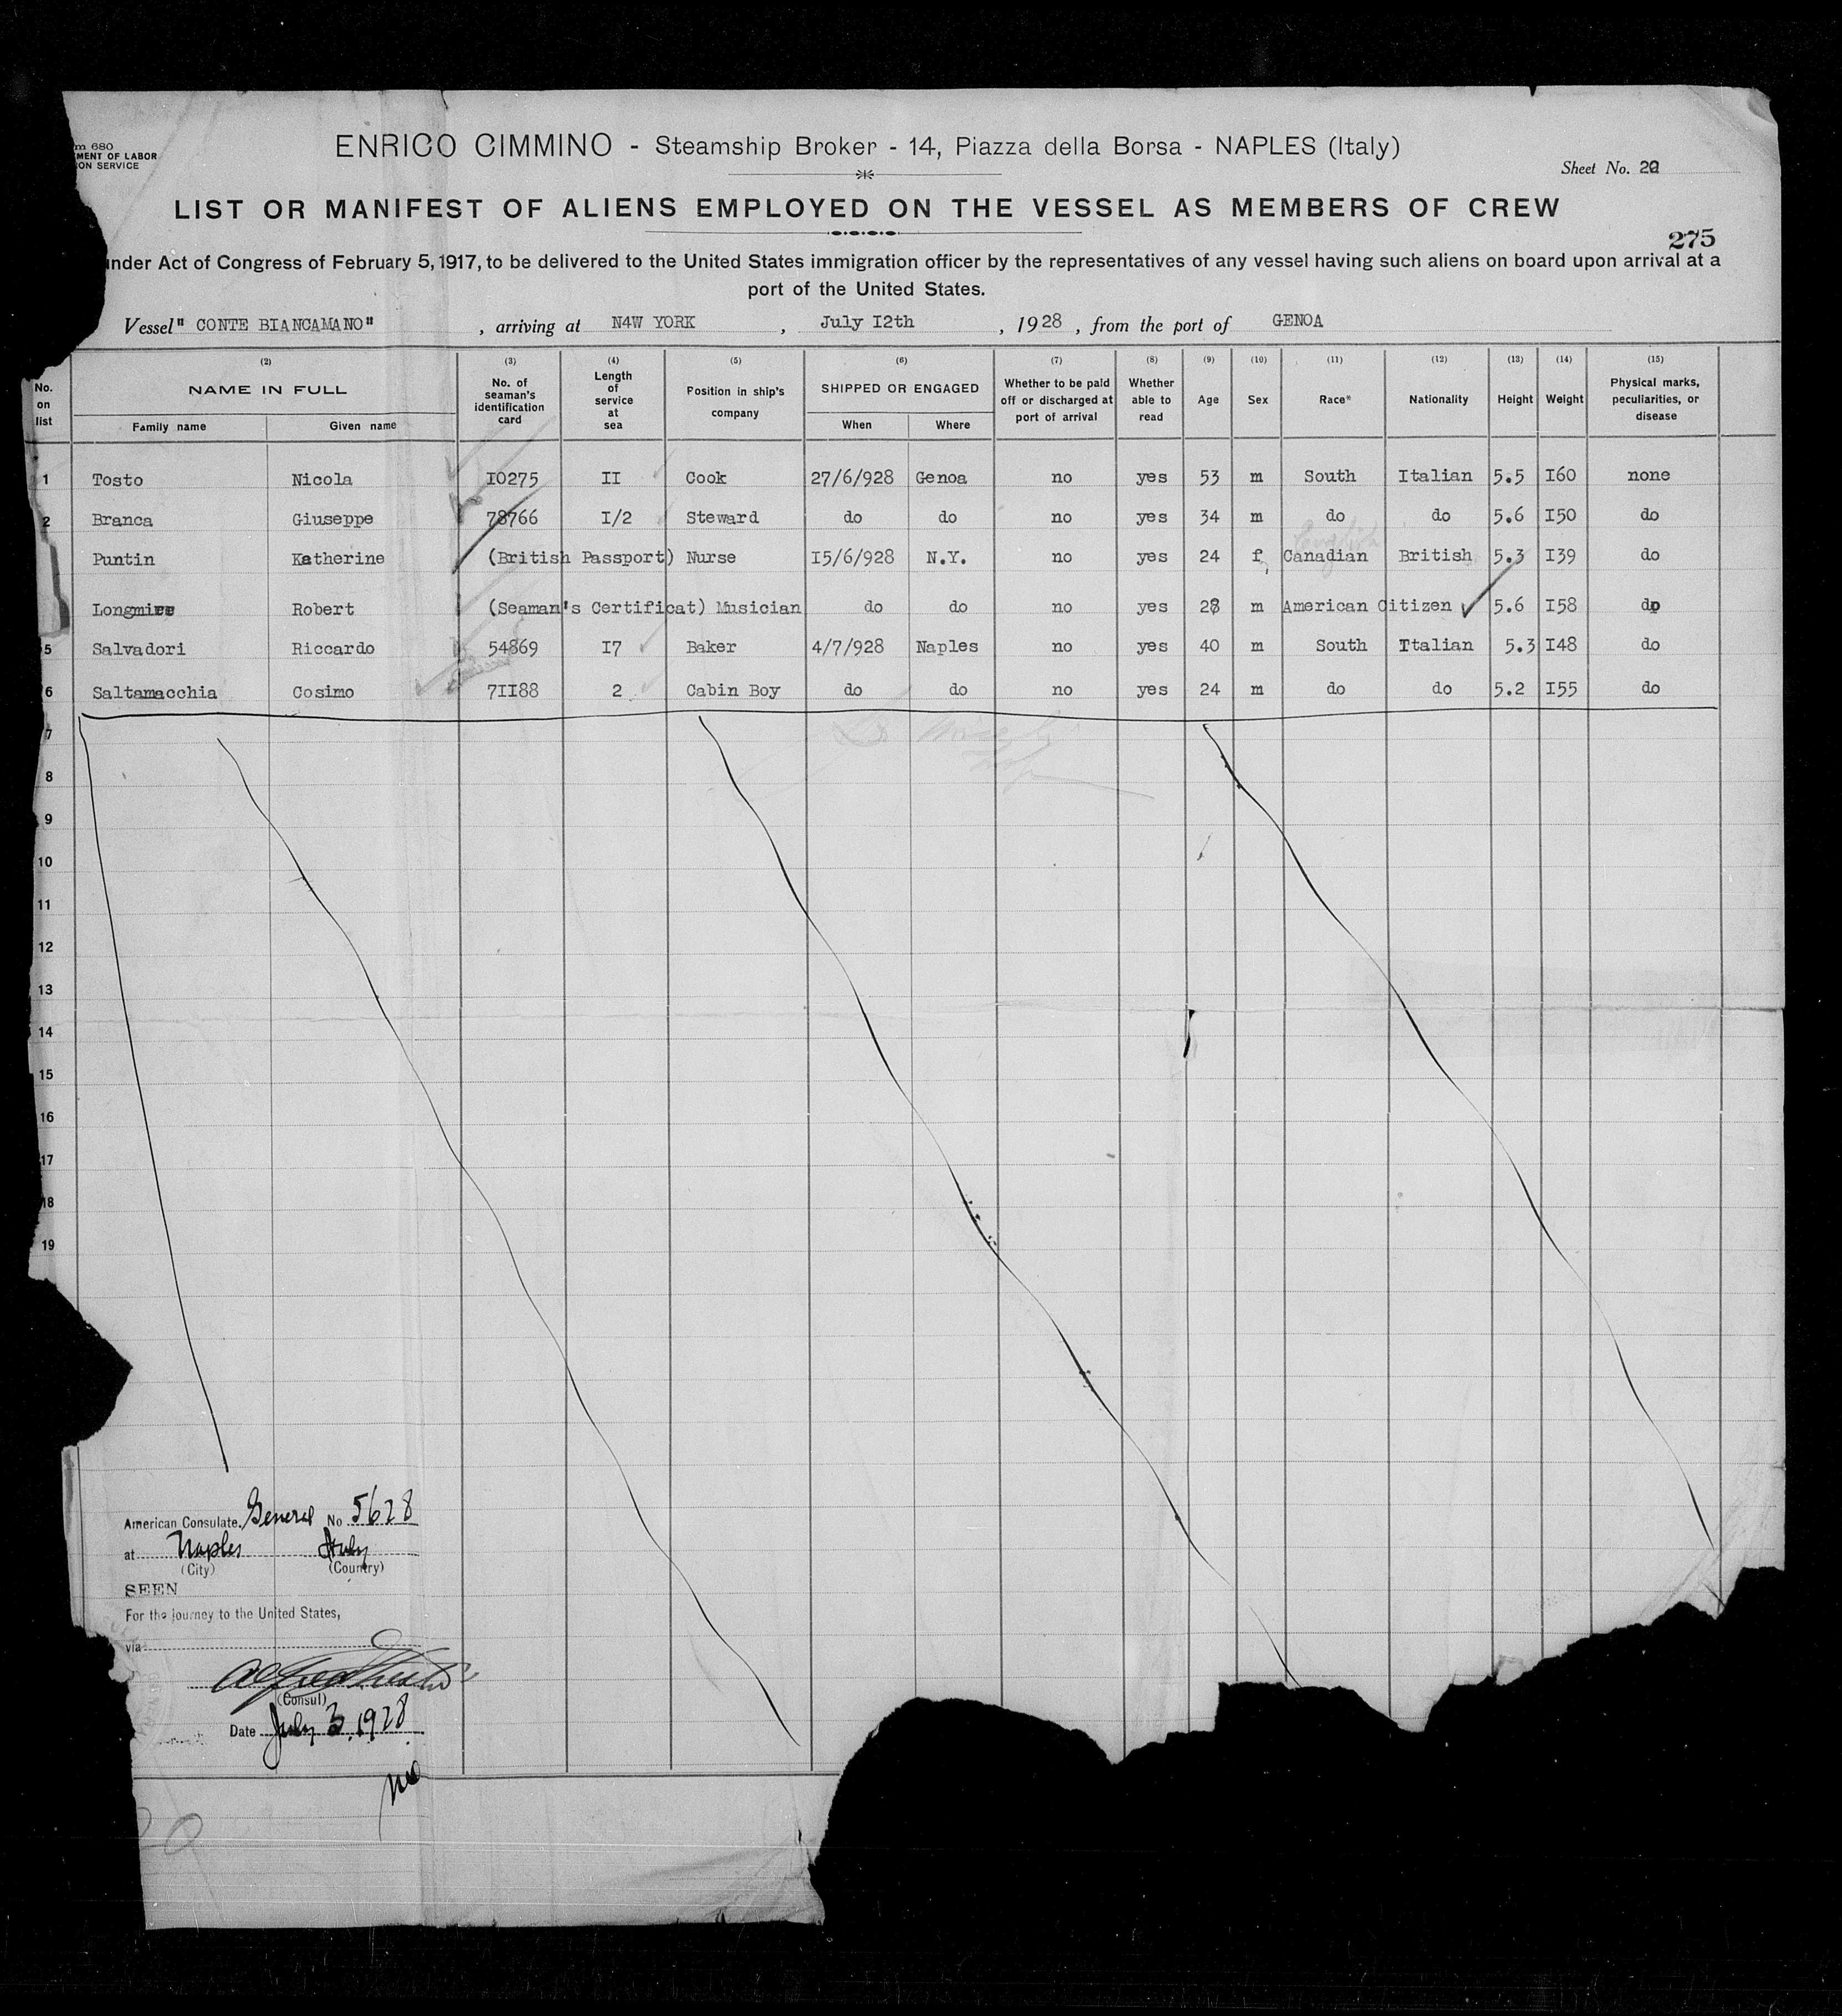 m 680
MENT OF LABOR
ON SERVICE
ENRICO CIMMINO - Steamship Broker - 14, Piazza della Borsa - NAPLES (Italy)
Sheet No.
LIST OR MANIFEST OF ALIENS EMPLOYED ON THE VESSEL AS MEMBERS OF CREW
275
under Act of Congress of February 5, 1917, to be delivered to the United States immigration officer by the representatives of any vessel having such aliens on board upon arrival at a
port of the United States.
Vessel "CONTE BIANCAMANO", arriving at N4W YORK, July I2th, 1928, from the port of GENOA
(2) (3) (4) (5) (6) (7) (8) (9) (10) (11) (12) (13) (14) (15)
No. on list NAME IN FULL No. of seaman's identification card Length of service at sea Position in ship's company SHIPPED OR ENGAGED Whether to be paid off or discharged at port of arrival Whether able to read Age Sex Race* Nationality Height Weight Physical marks, peculiarities, or disease
Family name Given name When Where
1 Tosto Nicola I0275 II Cook 27/6/928 Genoa no yes 53 m South Italian 5.5 I60 none
2 Branca Giuseppe 78766 I/2 Steward do do no yes 34 m do do 5.6 I50 do
Puntin Katherine (British Passport) Nurse I5/6/928 N.Y. no yes 24 f Canadian British 5.3 I39 do
Longmire Robert (Seaman's Certificat) Musician do do no yes 28 m American Citizen 5.6 I58 do
5 Salvadori Riccardo 54869 I7 Baker 4/7/928 Naples no yes 40 m South Ttalian 5.3 I48 do
6 Saltamacchia Cosimo 7II88 2 Cabin Boy do do no yes 24 m do do 5.2 I55 do
7
8
9
10
11
12
13
14
15
16
17
18
19
American Consulate General No 5628
at Naples Italy
(City) (Country)
SEEN
For the journey to the United States,
via
(Consul)
Date July 3, 1928